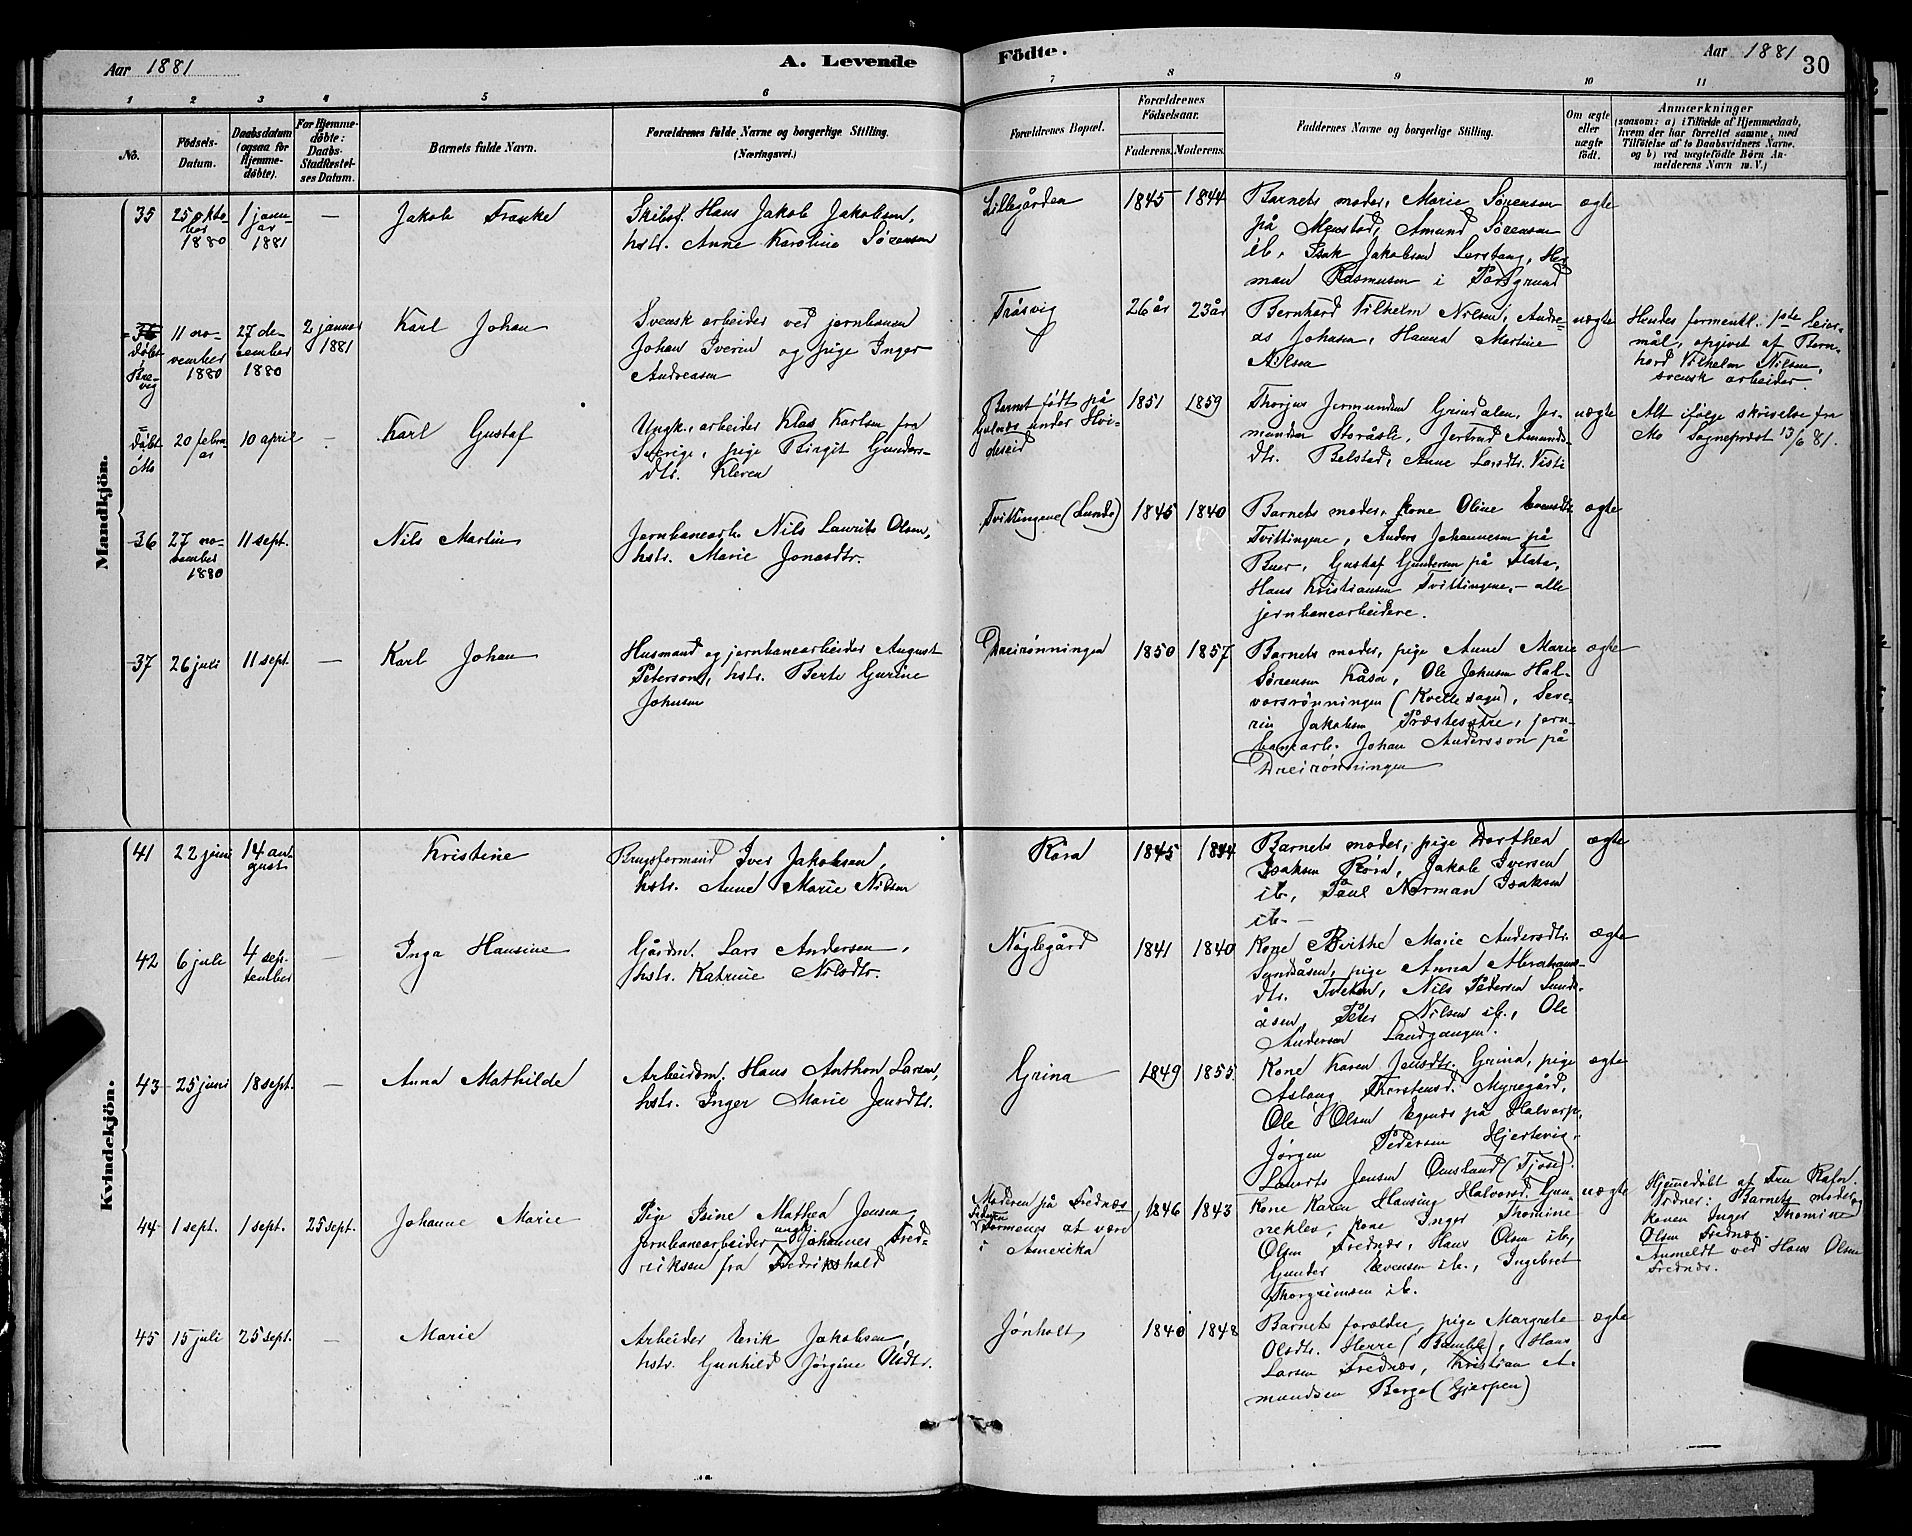 Aar 1881
A. Levende
Födte.
Aar 1881
30
1 2 3 4 5 6 7 8 9 10 11
No.
Födsels-
Datum.
Daabsdatum
(ogsaa for
Hjemme-
döbte).
For Hjemme-
døbte:
Daabs-
Stadfæstel-
ses Datum.
Barnets fulde Navn.
Forældrenes fulde Navne og borgerlige Stilling.
(Næringsvei.)
Forældrenes Bopæl.
Forældrenes
Födselsaar.
Faderens.
Moderens.
Faddernes Navne og borgerlige Stilling.
Om ægte
eller
uægte
født.
Anmærkninger
(saasom: a) i Tilfælde af Hjemmedaab,
hvem der har forrettet samme, med
Tilföielse af to Daabsvidners Navne.
og b) ved uægtefödte Börn An-
melderens Navn m. V.)
Mandkjön.
35
25 okto-
ber
1880
1 janu-
ar
1881
—
Jakob Franke
Skibsf. Hans Jakob Jakobsen,
hstr. Anne Karoline Sørensen
Lillegården
1845
1844
Barnets moder, Marie Sørensen
på Menstad, Amund Sørensen
ib, Isak Jakobsen Lerstang, Her
man Rasmusen i Porsgrund
ægte
døbt
Bre-
vig
11 no-
vember
1880
27 de-
cember
1880
2 januar
1881
Karl Johan
Svensk arbeider ved jernbanen
Johan Iverin og pige Inger
Andreasen
Trosvig
26 år
23 år
Bernhard Vilhelm Nilsen, Andre-
as Johnsen, Hanna Martine
Nilsen
uægte
Hendes formentl. 1ste leier-
mål, opgivet af Bern-
hard Vilhelm Nilsen,
svensk arbeider
døbt
i Mo
20 febru-
ar
10 april
-
Karl Gustaf
Ungk., arbeider Klas Karlsen fra
Sverige, pige Birgit Gunders-
dtr. Kleven
Barnet født på
under Hvi-
deseid
1851
1859
Thorjus Jermundsen Grindalen, Jer-
mundsen Storåsli, Jertrud Amunds-
dtr. Belstad, Anne Larsdtr. Visti
uægte
Alt ifølge skrivelse fra
Mo Sognepræst 13/6 81.
36
27 no-
vember
1880
11 sept.
Nils Martin
Jernbanearb. Nils Laurits Olsen,
hstr. Marie Jonasdtr.
Tvittingene (Lunde)
1845
1840
Barnets moder, kone Oline Evensdtr.
Tvittingene, Anders Johannesen på
Buer, Gustaf Gundersen på Flata,
Hans Kristiansen Tvittingene, - alle
jernbanearbeidere.
ægte
37
26 juli
11 sept.
—
Karl Johan
Husmand og jernbanearbeider August
Peterson, hstr. Berte Gurine
Johnsen
Dreirønningen
1850
1857
Barnets moder, pige Anne Marie
Sørensen Kåsa, Ole Johnsen Hal-
vorsrønningen (Kvelle sogn), Seve-
rin Jakobsen Præstesætre, jern-
banearb. Johan Andersson på
Dreirønningen
ægte
Kvindekjön.
41
22 juni
14 au-
gust
Kristine
Brugsformand Iver Jakobsen,
hstr. Anne Marie Nilsen
Røra
1845
1844
Barnets moder, pige Dorthea
Isaksen Røra, Jakob Iversen
ib, Paul Norman Isaksen
ib. -
ægte
42
6 juli
4 sep-
tember
—
Inga Hansine
Gårdm. Lars Andersen,
hstr. Katrine Nilsdtr.
Nøglegård
1841
1840
Kone Birthe Marie Andersdtr.
Sundsåsen, pige Anna Abrahams-
dtr. Tveten, Nils Pedersen Sunds-
åsen, Peter Nilsen ib., Ole
Andersen Landgangen.
ægte
43
25 juni
18 sept.
—
Anna Mathilde
Arbeidsm. Hans Anthon Larsen,
hstr. Inger Marie Jensdtr.
Grina
1849
1855
Kone Karen Jensdtr. Grina, pige
Aslaug Thorstensd. Myregård,
Ole Olsen Egenes på Halvarp,
Jørgen Pedersen Hjertevig,
Laurits Jensen Omsland (Tjose).
ægte
44
1 sept.
1 sept.
25 sept.
Johanne Marie
Pige Isine Mathea Jensen,
jernbanearbeider ungk. Johannes Fred-
riksen fra Fredrikshald
Moderen på Frednæs,
Faderen
formenes at være
i Amerika
1846
1843
Kone Karen Hansine Halvorsd. Gun-
neklev, kone Inger Thomine
Olsen Frednæs, Hans Olsen ib,
Gunder Evensen ib., Ingebret
Thorgrimsen ib.
uægte
Hjemmedøbt af Fru Rafn.
Vidner: Barnets moder og
konen Inger Thomine
Olsen Frednæs.
Anmeldt ved Hans Olsen
Frednæs.
45
15 juli
25 sept.
—
Marie
Arbeider Erik Jakobsen,
hstr. Gunhild Jørgine Olsdtr.
Jønholt
1840
1848
Barnets forældre, pige Margrete
Olsdtr. Herre (Bamble), Hans
Larsen Frednæs, Kristian A-
mundsen Berge (Gjerpen)
ægte